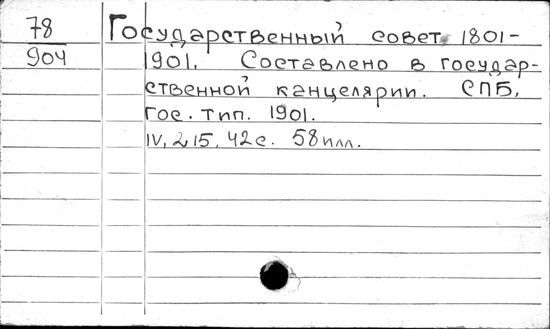 78
904
Государственный совет 1801-
1901. Составлено в государ-
ственной канцелярии. СПБ,
гос. тип. 1901.
IV, 215, 42 с. 58 илл.